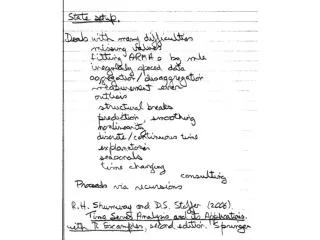 State setup.
Deals with many difficulties
missing values
fitting ARMAs by mle
irregularly spaced data
aggregation/disaggregation
measurement error
outliers
structural breaks
prediction, smoothing
nonlinearity
discrete/continuous time
explanatories
seasonals
time changing
consulting
Proceeds via recursions
R.H. Shumway and D.S. Stoffer (2006).
Time Series Analysis and its Applications.
with R Examples, second edition. Springer